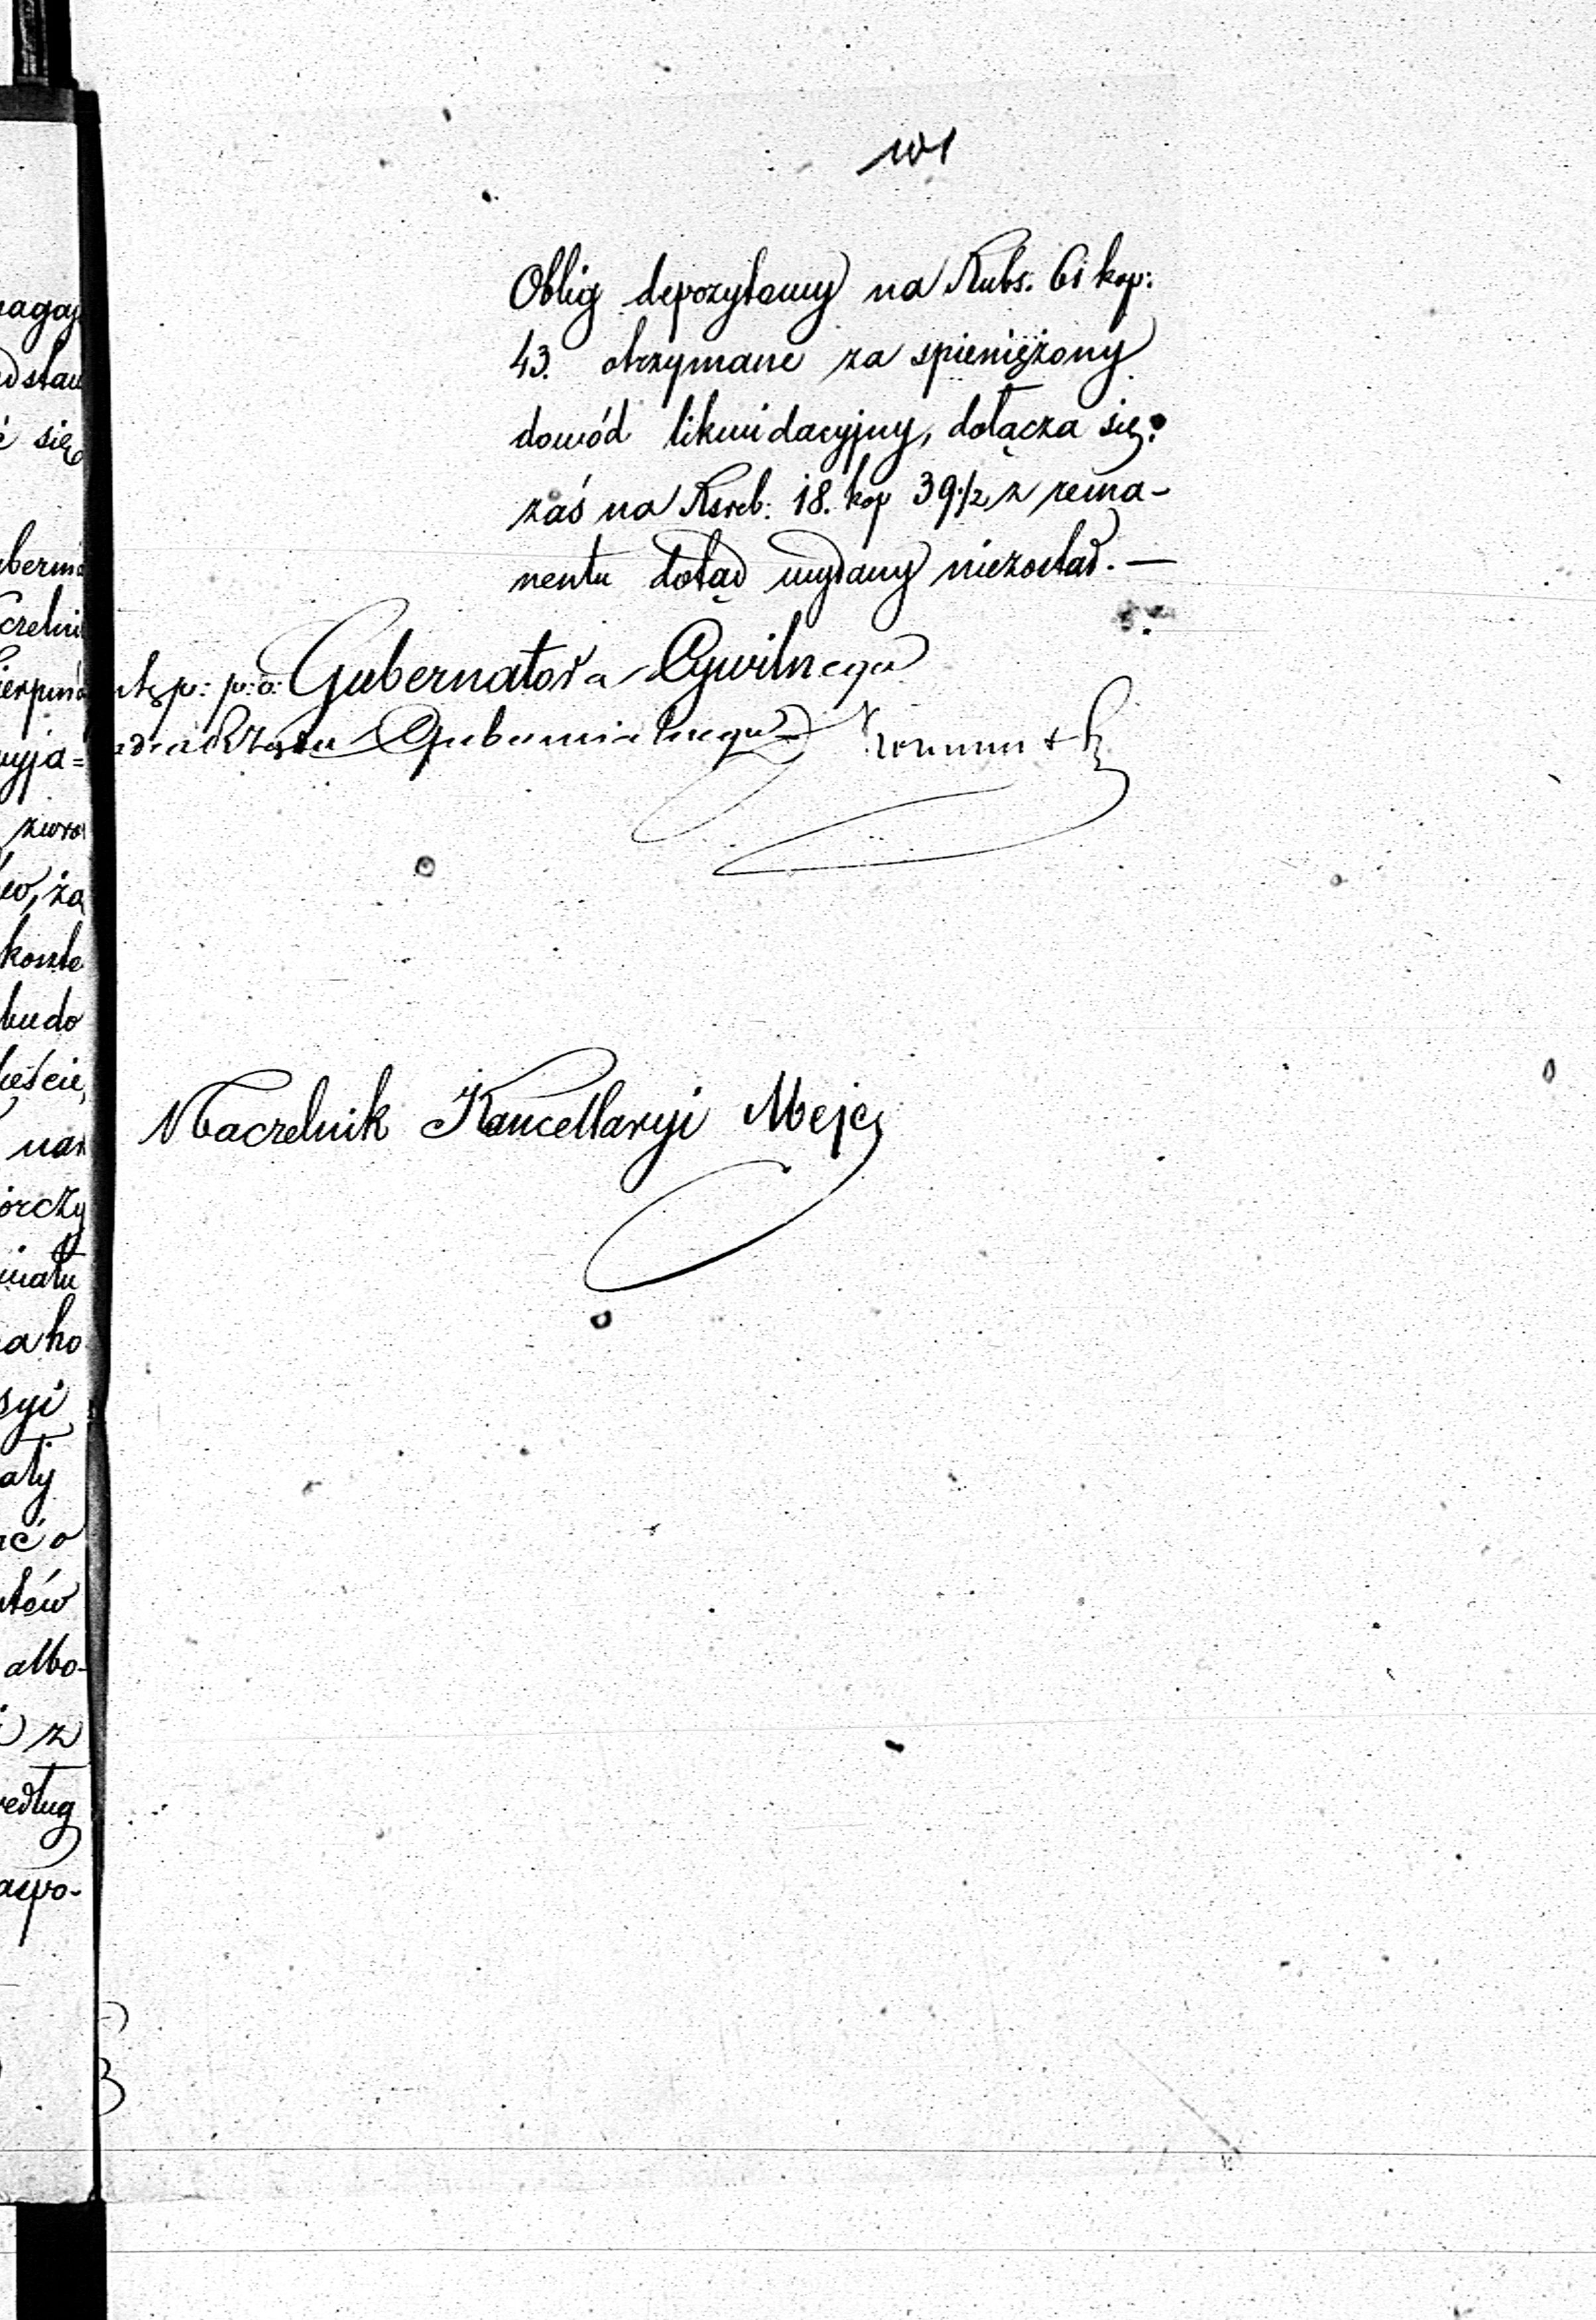 101
Oblig depozytowy na Rubs. 61 kop:
43. otrzymane za spieniężony
dowód likwidacyjny, dołącza się:
zaś na Rsreb: 18. kop 39 1/2 z rema-
nentu dotąd wydany niezostał. —
p: p: o: Gubernatora Cywilnego
Rządu Gubernialnego
Naczelnik Kancellaryi
magaj
dstaw
ć się
czelni
wyja=
zwro
ów, za
koszte
budo
eście,
nar
órczy
aho
syi
ały
ać o
ntów
albo-
z
edług